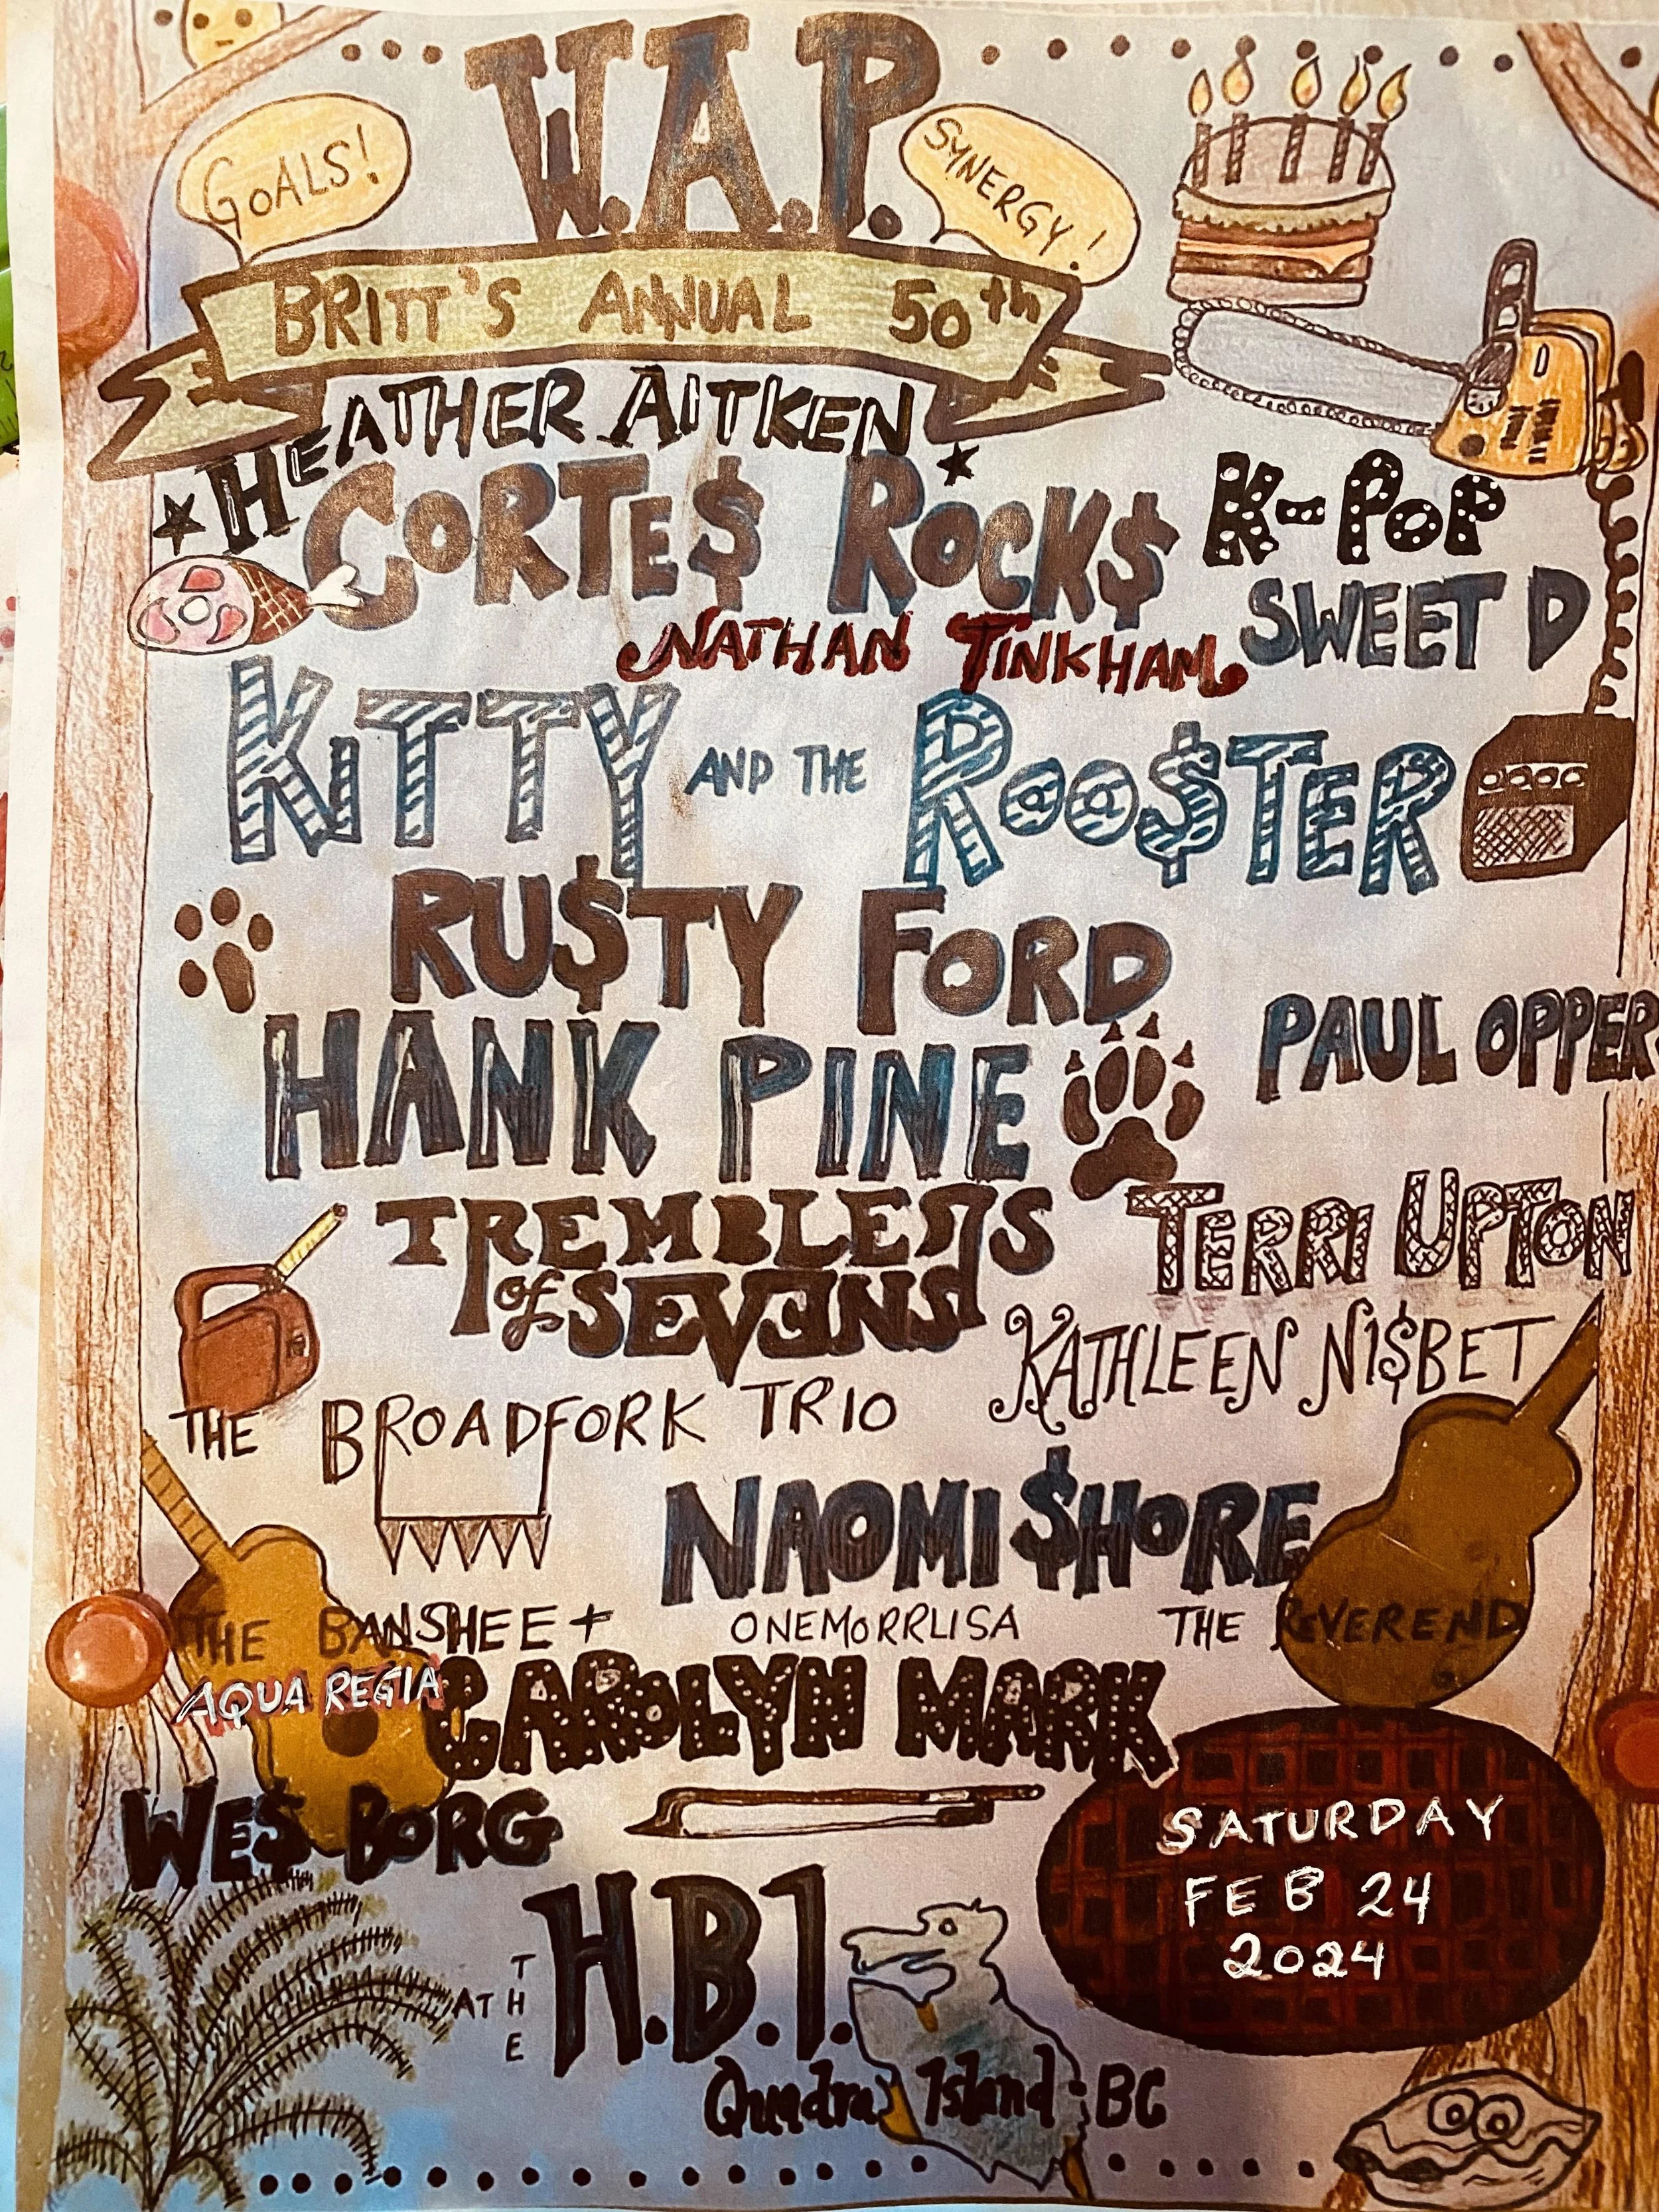 W.A.P.
GOALS!
SYNERGY!
BRITT'S ANNUAL 50th
HEATHER AITKEN
CORTE$ ROCK$
K-POP
SWEET D
NATHAN TINKHAM
KITTY AND THE ROO$TER
RU$TY FORD
HANK PINE
PAUL OPPER
TREMBLERS
of SEVENS
TERRI UPTON
KATHLEEN NI$BET
THE BROADFORK TRIO
NAOMI $HORE
THE BANSHEE + ONEMORRLISA THE REVEREND
AQUA REGIA
CAROLYN MARK
WES BORG
SATURDAY
FEB 24
2024
AT THE H.B.I.
Quadra Island BC